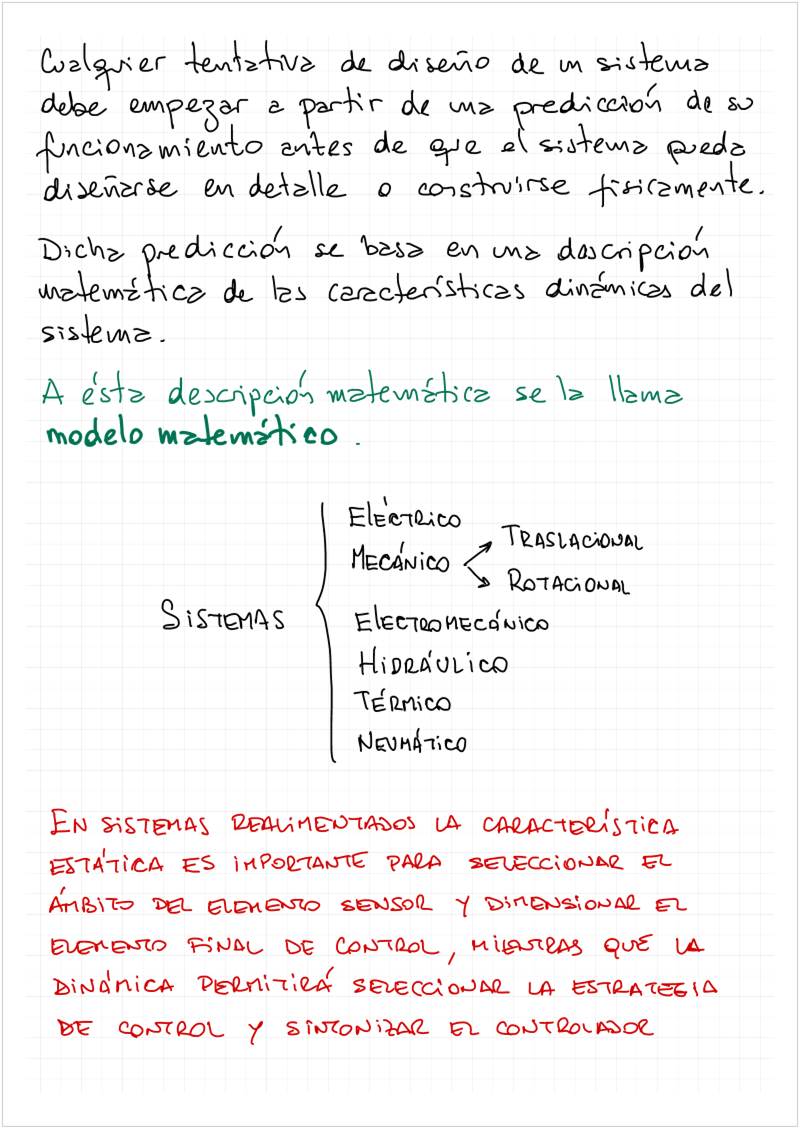 Cualquier tentativa de diseño de un sistema
debe empezar a partir de una predicción de su
funcionamiento antes de que el sistema pueda
diseñarse en detalle o construirse físicamente.
Dicha predicción se basa en una descripción
matemática de las características dinámicas del
sistema.
A ésta descripción matemática se la llama
modelo matemático.
SISTEMAS
ELÉCTRICO
MECÁNICO
TRASLACIONAL
ROTACIONAL
ELECTROMECÁNICO
HIDRÁULICO
TÉRMICO
NEUMÁTICO
EN SISTEMAS REALIMENTADOS LA CARACTERÍSTICA
ESTÁTICA ES IMPORTANTE PARA SELECCIONAR EL
ÁMBITO DEL ELEMENTO SENSOR Y DIMENSIONAR EL
ELEMENTO FINAL DE CONTROL, MIENTRAS QUE LA
DINÁMICA PERMITIRÁ SELECCIONAR LA ESTRATEGIA
DE CONTROL Y SINTONIZAR EL CONTROLADOR